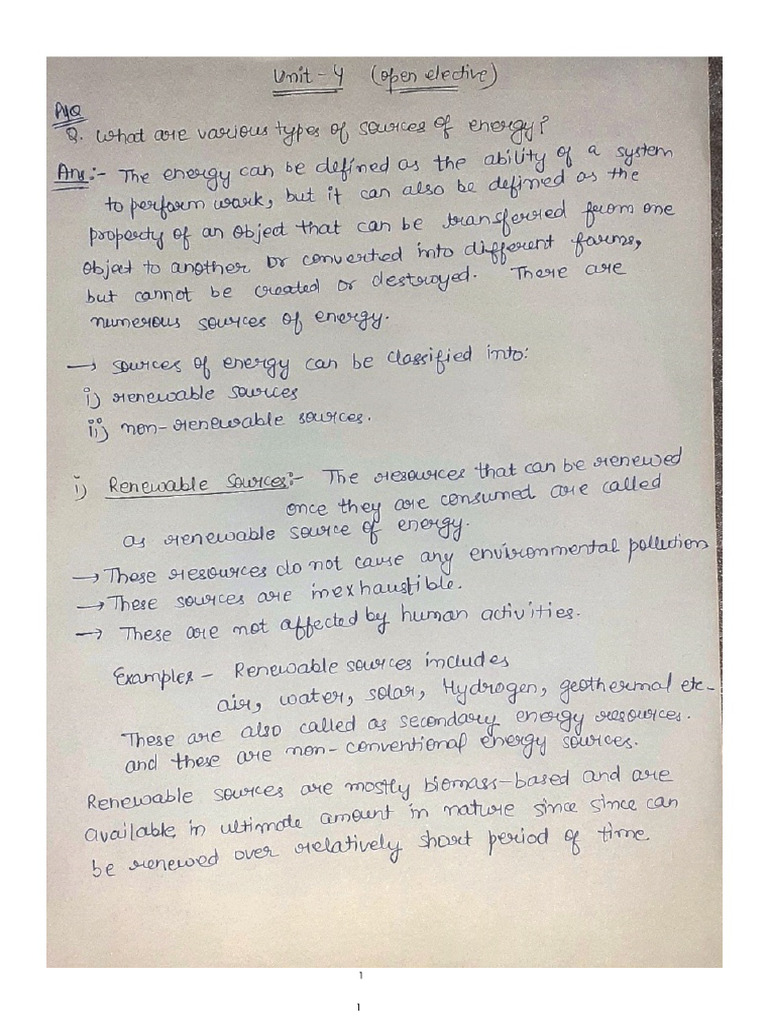 Unit - 4 (open elective)
PYQ
Q. What are various types of sources of energy?
Ans:- The energy can be defined as the ability of a system
to perform work, but it can also be defined as the
property of an object that can be transferred from one
object to another or converted into different forms,
but cannot be created or destroyed. There are
numerous sources of energy.
→ sources of energy can be classified into:
i) renewable sources
ii) non-renewable sources.
i) Renewable Sources:- The resources that can be renewed
once they are consumed are called
as renewable source of energy.
→ These resources do not cause any environmental pollution
→ These sources are inexhaustible.
→ These are not affected by human activities.
Examples - Renewable sources includes
air, water, solar, Hydrogen, geothermal etc-
These are also called as secondary energy resources.
and these are non-conventional energy sources.
Renewable sources are mostly biomass-based and are
available in ultimate amount in nature since since can
be renewed over relatively short period of time
1
1